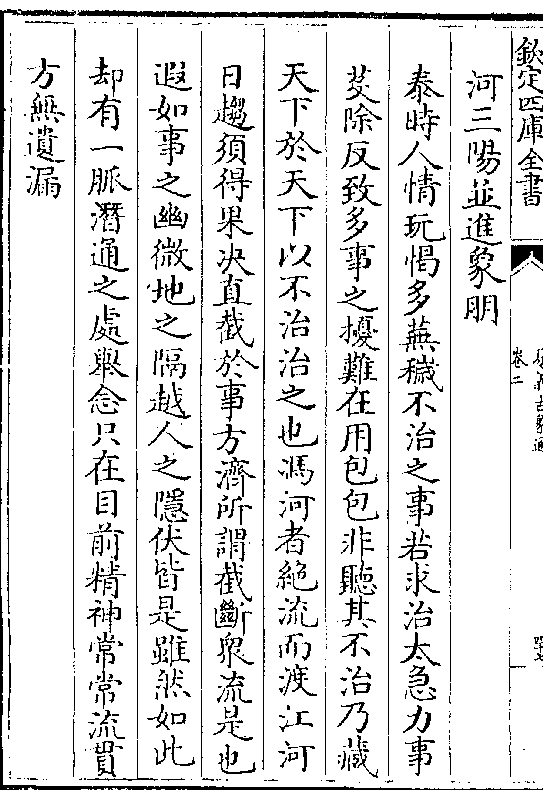 欽定四庫全書
卷二
河三陽並進象朋
泰時人情玩愒多蕪穢不治之事若求治太急力事
芟除反致多事之擾難在用包包非聽其不治乃藏
天下於天下以不治治之也馮河者絶流而渡江河
日趨須得果决直截於事方濟所謂截斷衆流是也
遐如事之幽微地之隔越人之隱伏皆是雖然如此
却有一脈潛通之處舉念只在目前精神常常流貫
方無遺漏